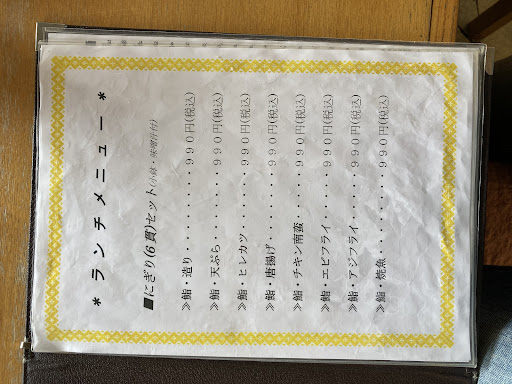 * ランチメニュー *
■にぎり(6貫)セット(小鉢・味噌汁付)
≫鮨・造り・・・・・・990円(税込)
≫鮨・天ぷら・・・・・990円(税込)
≫鮨・ヒレカツ・・・・990円(税込)
≫鮨・唐揚げ・・・・・990円(税込)
≫鮨・チキン南蛮・・・990円(税込)
≫鮨・エビフライ・・・990円(税込)
≫鮨・アジフライ・・・990円(税込)
≫鮨・焼魚・・・・・・990円(税込)